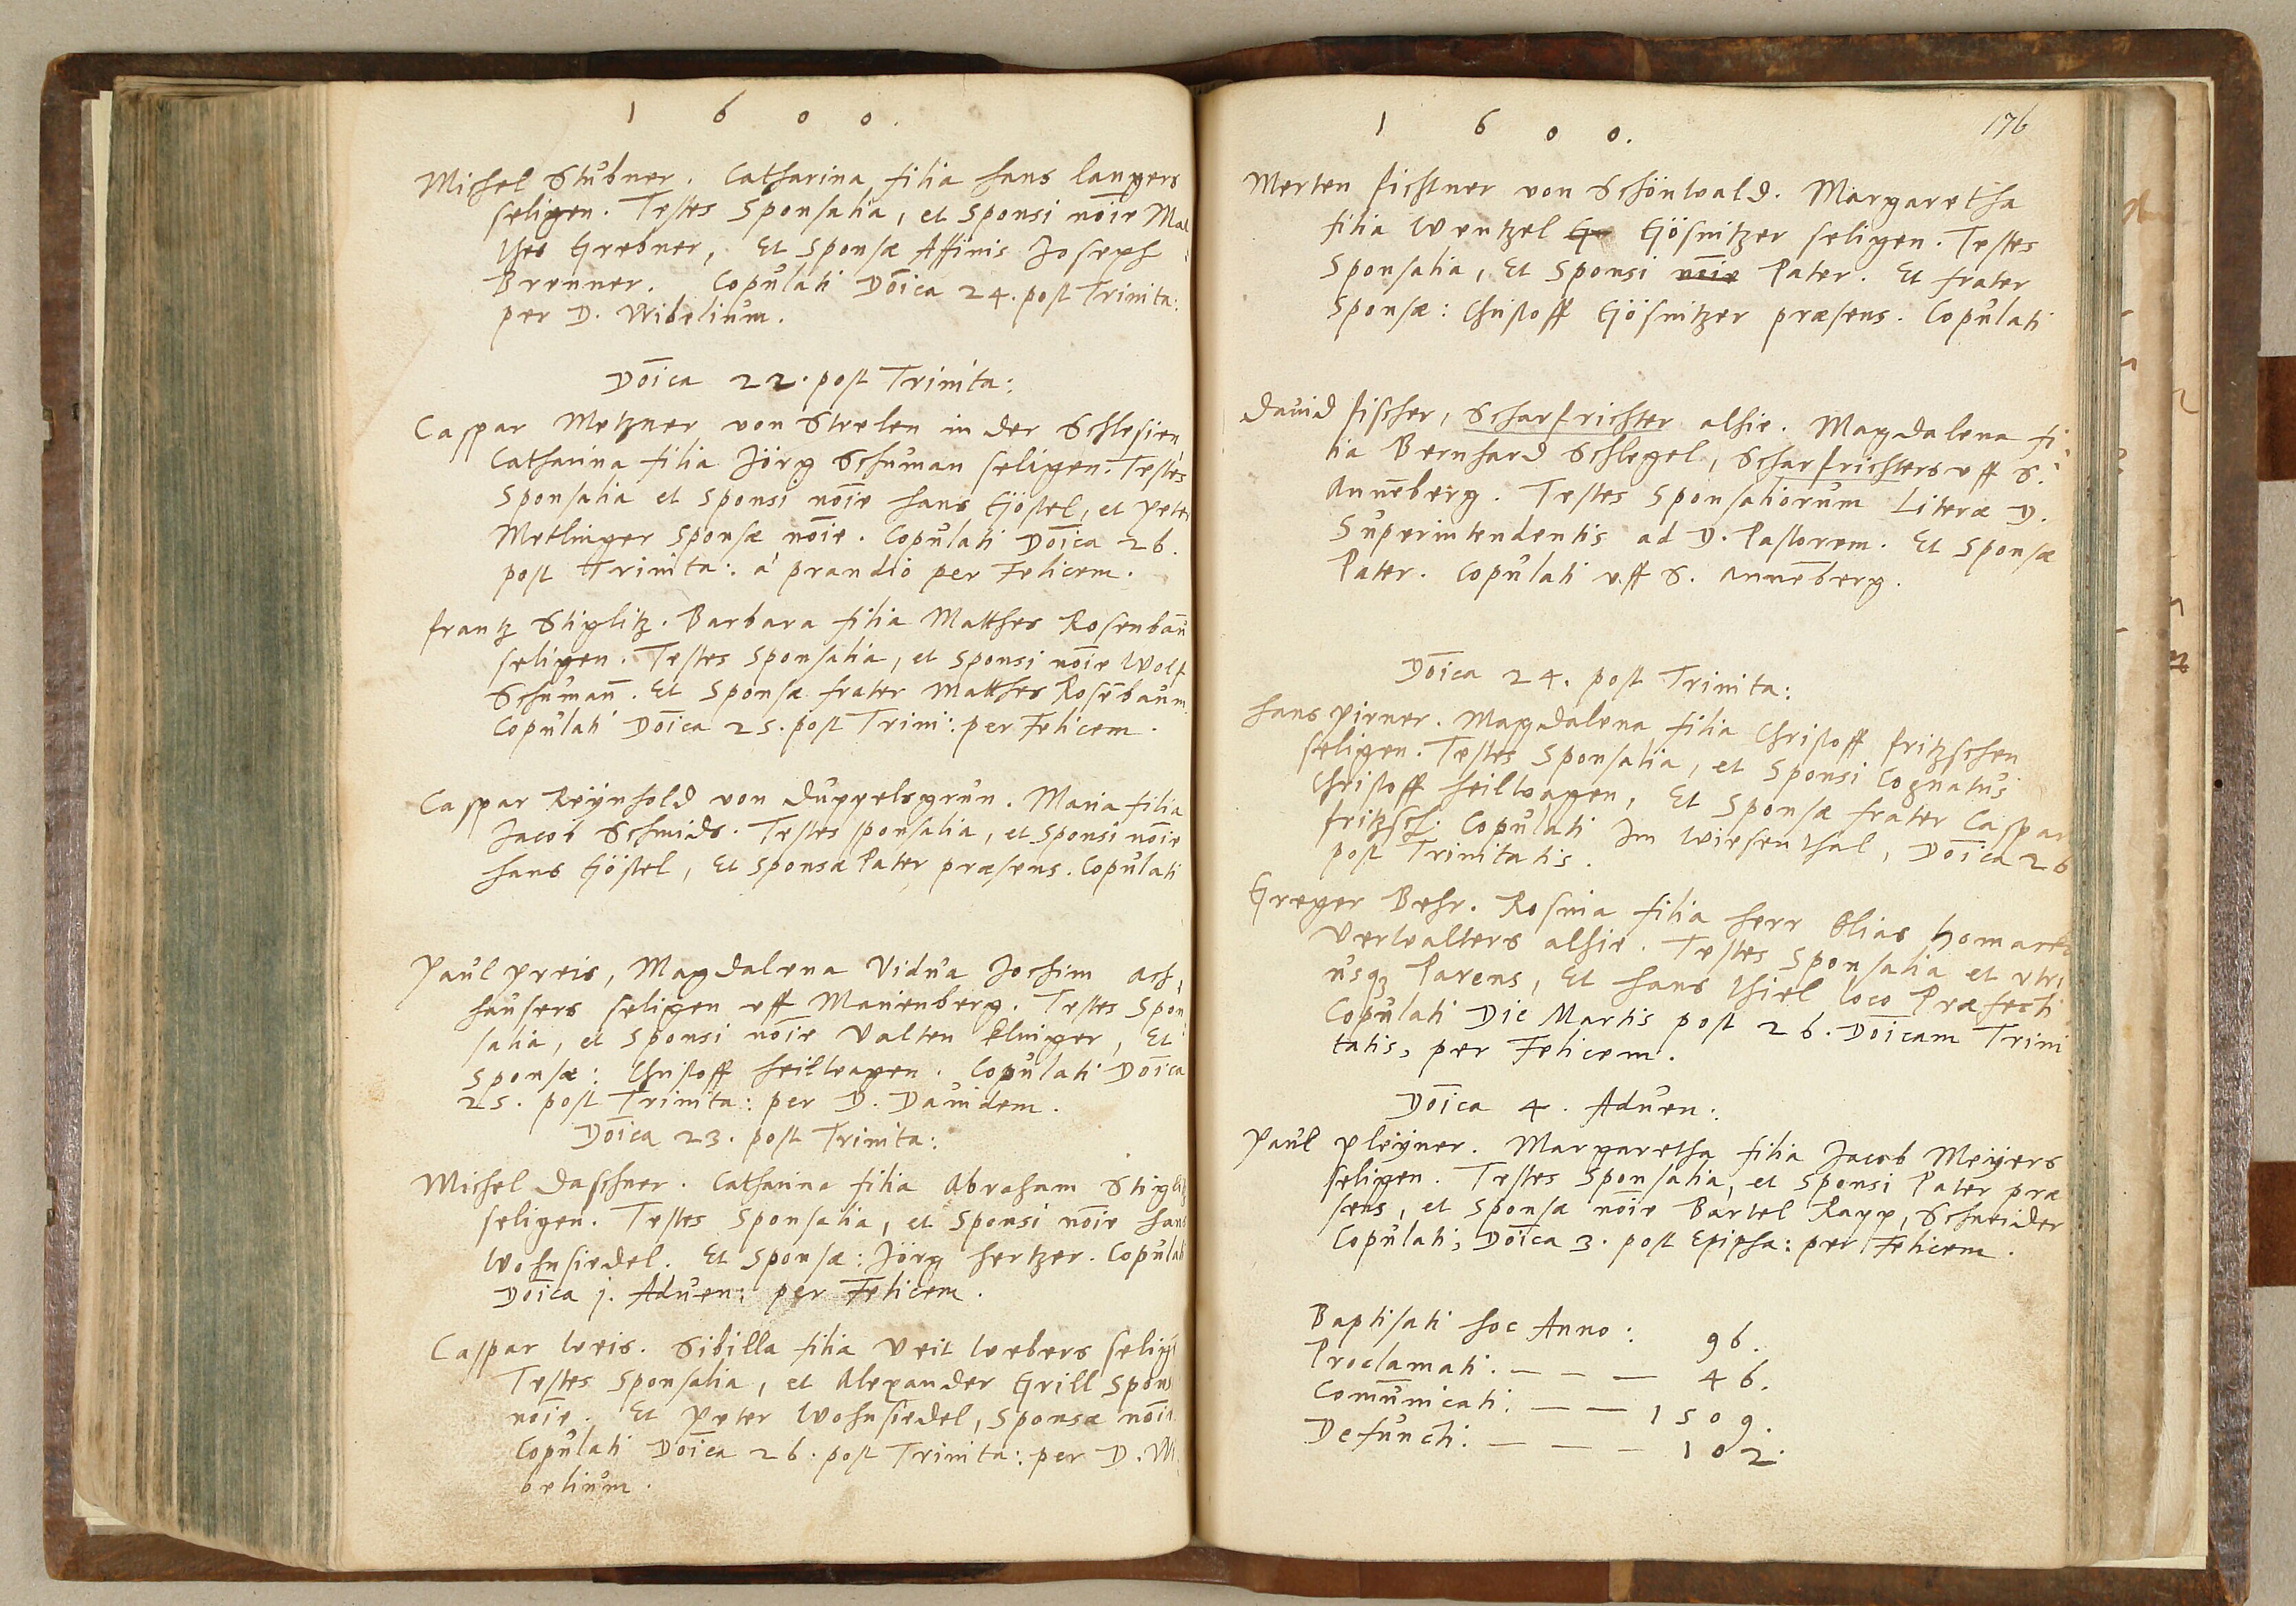 1 6 0 0.
Michel Stübner. Catharina filia Hans Langers
seligen. Testes Sponsalia, et Sponsi nōie Mat
thes Grebner, Et Sponsæ Affinis Joseph
Brenner. Copulati Dōica 24. post Trinita:
per D. Wibelium.
Dōica 22. post Trinita:
Caspar Metzner von Strelen in der Schlesien
Catharina filia Jörg Schuman seligen. Testes
Sponsalia et Sponsi nōie Hans Göstel, et Peter
Metlinger Sponsæ nōie. Copulati Dōica 26.
post Trinita: à prandio per Felicem.
Frantz Stiglitz. Barbara filia Matthes Rosenbau̅
seligen. Testes Sponsalia, et Sponsi nōie Wolf
Schuman̅. Et Sponsæ frater Matthes Rose̅baum.
Copulati Dōica 25. post Trini: per Felicem.
Caspar Reÿnhold von Duppelsgrün. Maria filia
Jacob Schmids. Testes sponsalia, et Sponsi nōie
Hans Göstel, Et Sponsæ Pater præsens. Copulati
Paul Preis, Magdalena Vidua Jochim Ach,
hausers seligen uff Marienberg. Testes Spon
salia, et Sponsi nōie Valten Klinger, Et
Sponsæ: Christoff Heilwagen. Copulati Dōica
25. post Trinita: per D. Dauidem.
Dōica 23. post Trinita:
Michel Daschner. Catharina filia Abraham Stiglitz
seligen. Testes Sponsalia, et Sponsi nōie Hans
Wohnsiedel. Et Sponsæ: Jörg Hertzer. Copulati
Dōica j. Aduen: per Felicem.
Caspar Weis. Sibilla filia Veit Webers selig
Testes Sponsalia, et Alexander Grill Spons
nōie. Et Peter Wohnsiedel, Sponsæ nōie
Copulati Dōica 26. post Trinita: per D. Wi
belium.
1 6 0 0.
176
Merten Fichtner von Schönwald. Margaretha
filia Wentzel Gösnitzer seligen. Testes
Sponsalia, Et Sponsi nōie Pater. Et frater
Sponsæ: Christoff Gösnitzer præsens. Copulati
Dauid Fischer, Scharfrichter alhie. Magdalena fi
lia Bernhard Schlegel, Scharfrichters uff S.
Anne̅berg. Testes Sponsaliorum Literæ D.
Superintendentis ad D. Pastorem. Et Sponsæ
Pater. Copulati uff S. Anne̅berg.
Dōica 24. post Trinita:
Hans Pirner. Magdalena filia Christoff Fritzschen
seligen. Testes Sponsalia, et Sponsi Cognatus
Christoff Heilwagen, Et Sponsæ frater Caspar
Fritzsch. Copulati Im Wiesenthal, Dōica 26
post Trinitatis.
Greger Behr. Rosina filia Herr Elias
Verwalters alhie. Testes Sponsalia et utri
usq3 Parens, Et Hans Thiel loco Præfecti
Copulati Die Martis post 26. Dōicam Trini
tatis, per Felicem.
Dōica 4. Aduen:
Paul Pleÿner. Margaretha filia Jacob Meÿers
seligen. Testes Sponsalia, et Sponsi Pater præ
sens, et Sponsæ nōie Bartel Rapp, Schneider
Copulati, Dōica 3. post Epipha: per Felicem.
Baptisati hoc Anno: 96.
Proclamati. — — — 46.
Com̅unicati. — — 1509.
Defuncti. — — — 102.